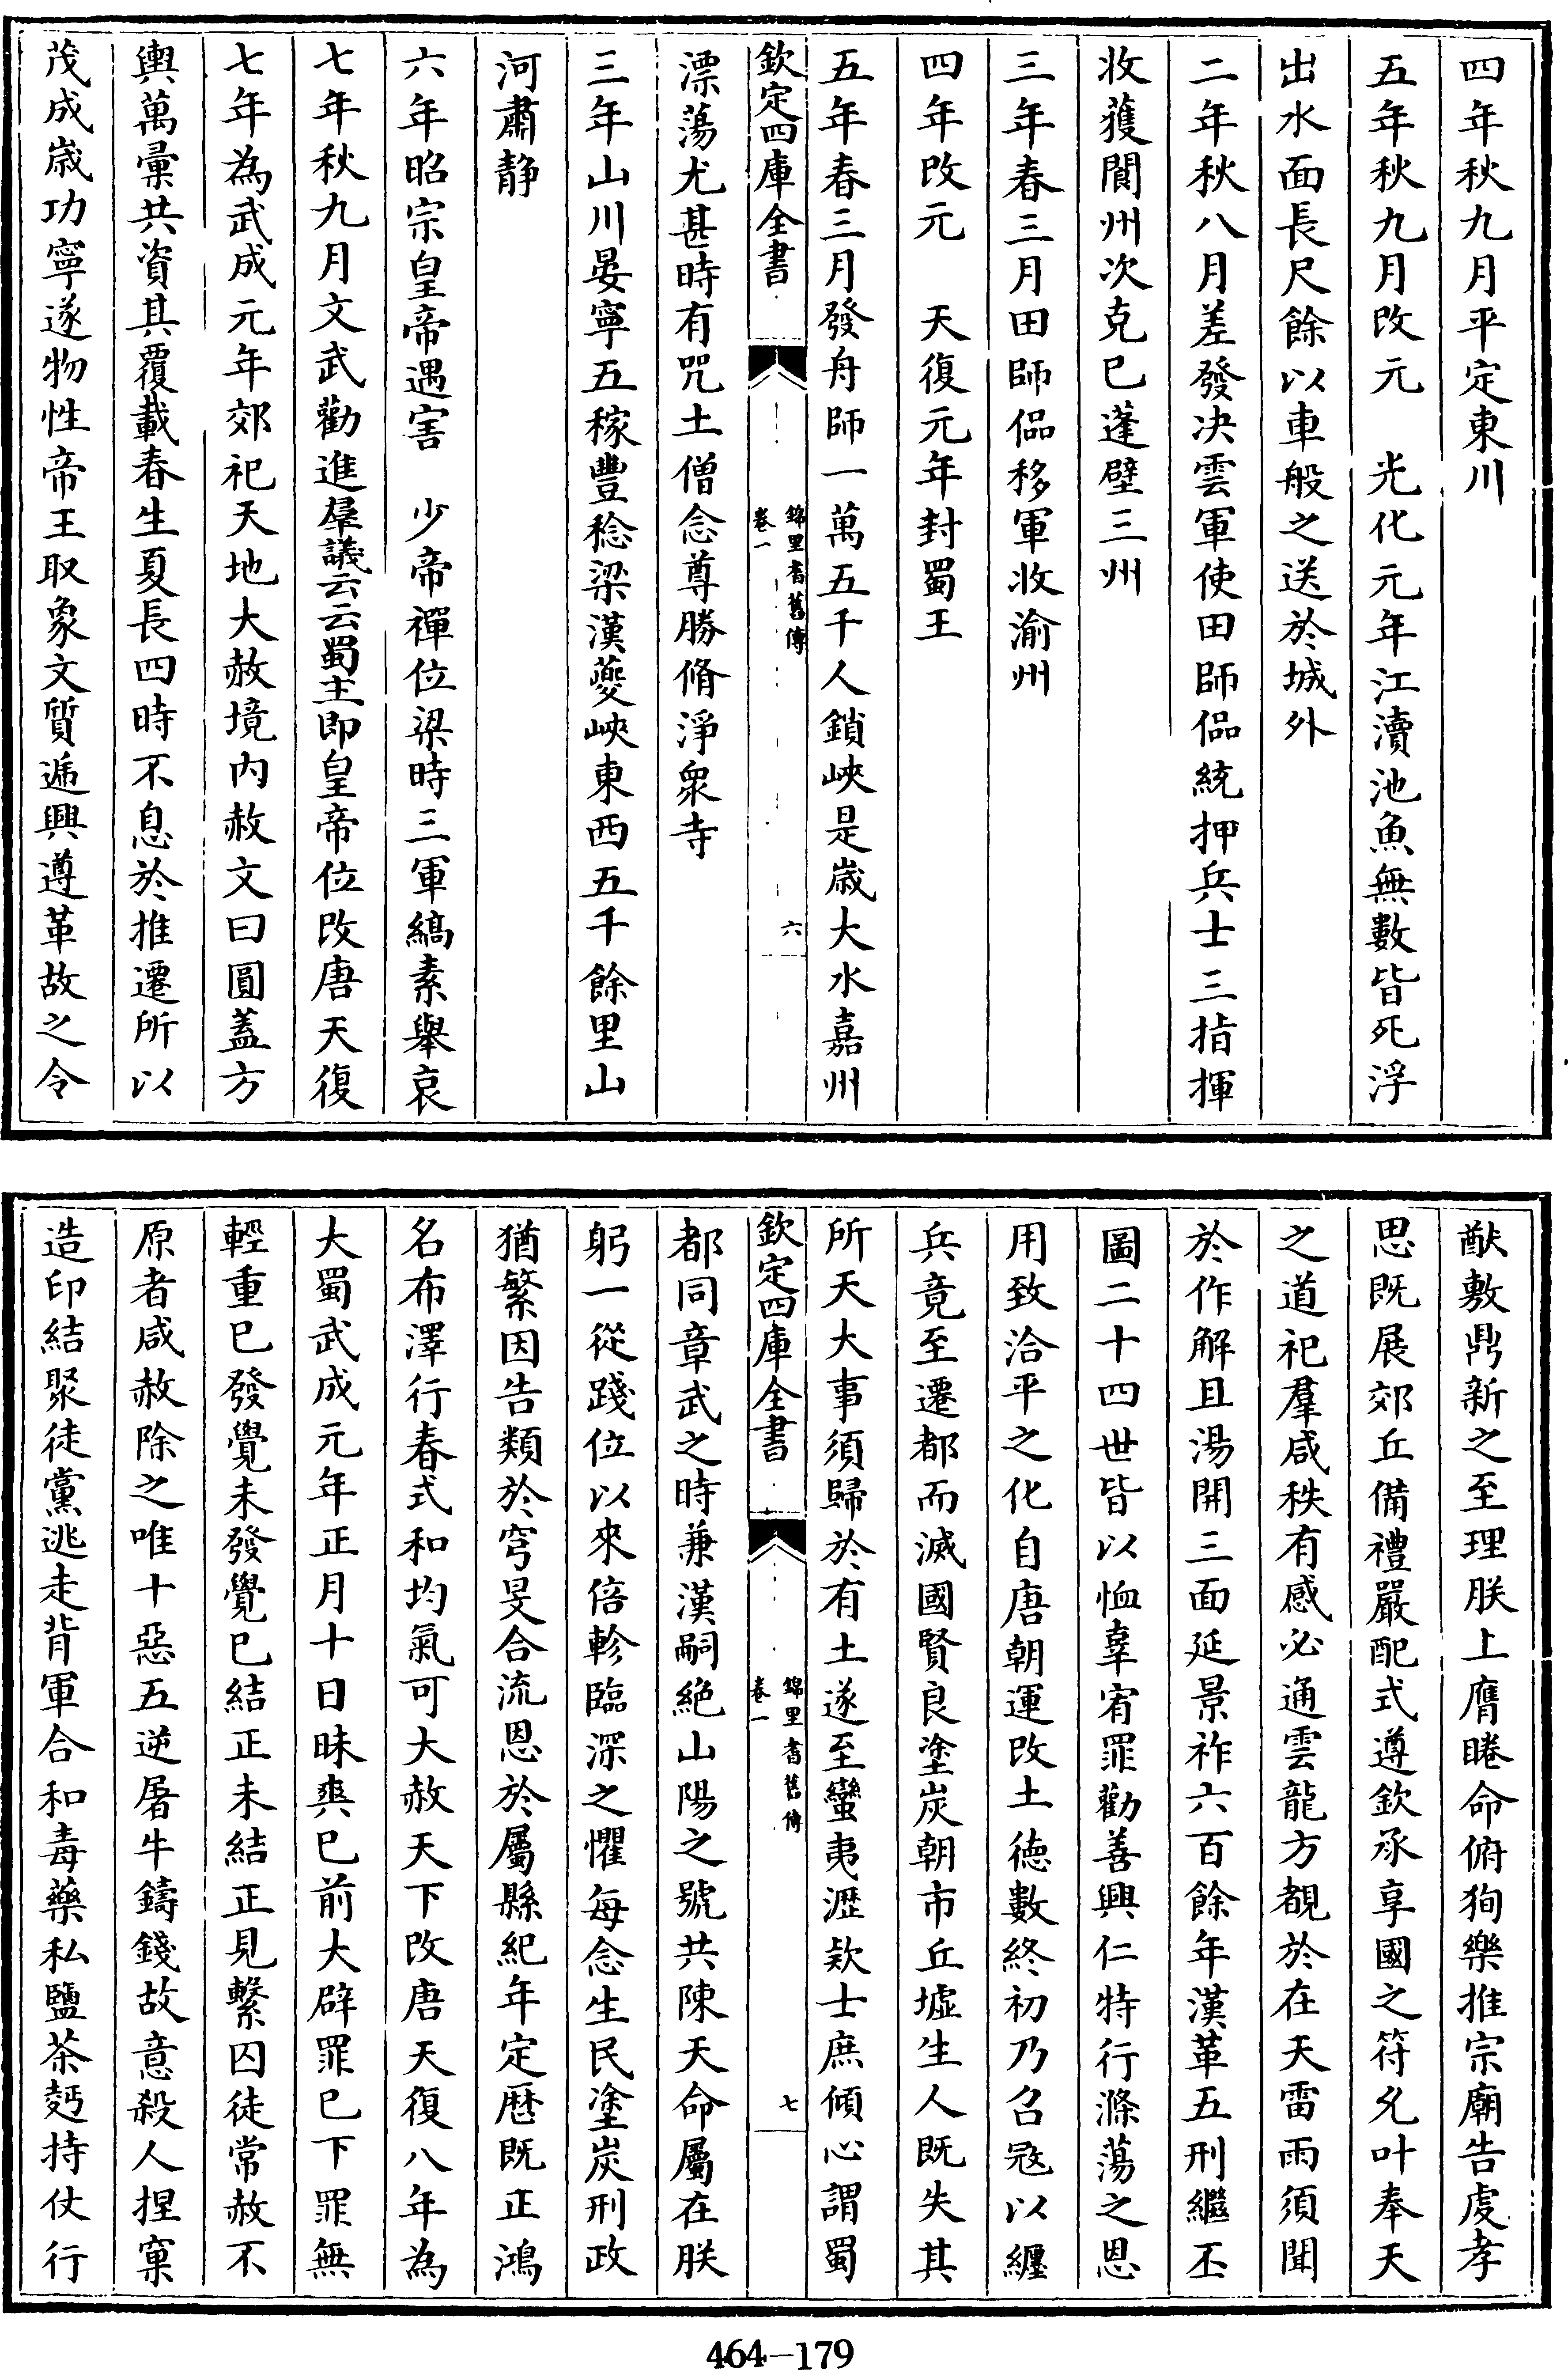 四年秋九月平定東川
五年秋九月改元　光化元年江瀆池魚無數皆死浮
出水面長尺餘以車般之送於城外
二年秋八月差發决雲軍使田師侣統押兵士三指揮
收獲閬州次克巴蓬壁三州
三年春三月田師侣移軍收渝州
四年改元　天復元年封蜀王
五年春三月發舟師一萬五千人鎖峽是嵗大水嘉州
欽定四庫全書
錦里耆舊傳
卷一
六
漂蕩尤甚時有咒土僧念尊勝脩淨衆寺
三年山川晏寧五稼豐稔梁漢夔峽東西五千餘里山
河肅静
六年昭宗皇帝遇害　少帝禪位梁時三軍縞素舉哀
七年秋九月文武勸進羣議云云蜀主即皇帝位改唐天復
七年為武成元年郊祀天地大赦境内赦文曰圓蓋方
輿萬彚共資其覆載春生夏長四時不息於推遷所以
茂成嵗功寧遂物性帝王取象文質遞興遵革故之令
猷敷鼎新之至理朕上膺睠命俯狥樂推宗廟告虔孝
思既展郊丘備禮嚴配式遵欽承享國之符允叶奉天
之道祀羣咸秩有感必通雲龍方覩於在天雷雨須聞
於作解且湯開三面延景祚六百餘年漢革五刑繼丕
圖二十四世皆以恤辜宥罪勸善興仁特行滌蕩之恩
用致洽平之化自唐朝運改土德數終初乃召冦以纏
兵竟至遷都而滅國賢良塗炭朝市丘墟生人既失其
所天大事須歸於有土遂至蠻夷瀝欵士庶傾心謂蜀
欽定四庫全書
錦里耆舊傳
卷一
七
都同章武之時兼漢嗣絶山陽之號共陳天命屬在朕
躬一從踐位以來倍軫臨深之懼每念生民塗炭刑政
猶繁因告類於穹旻合流恩於屬縣紀年定厯既正鴻
名布澤行春式和均氣可大赦天下改唐天復八年為
大蜀武成元年正月十日昧爽已前大辟罪已下罪無
輕重已發覺未發覺已結正未結正見繫囚徒常赦不
原者咸赦除之唯十惡五逆屠牛鑄錢故意殺人揑窠
造印結聚徒黨逃走背軍合和毒藥私鹽茶麪持仗行
464-179